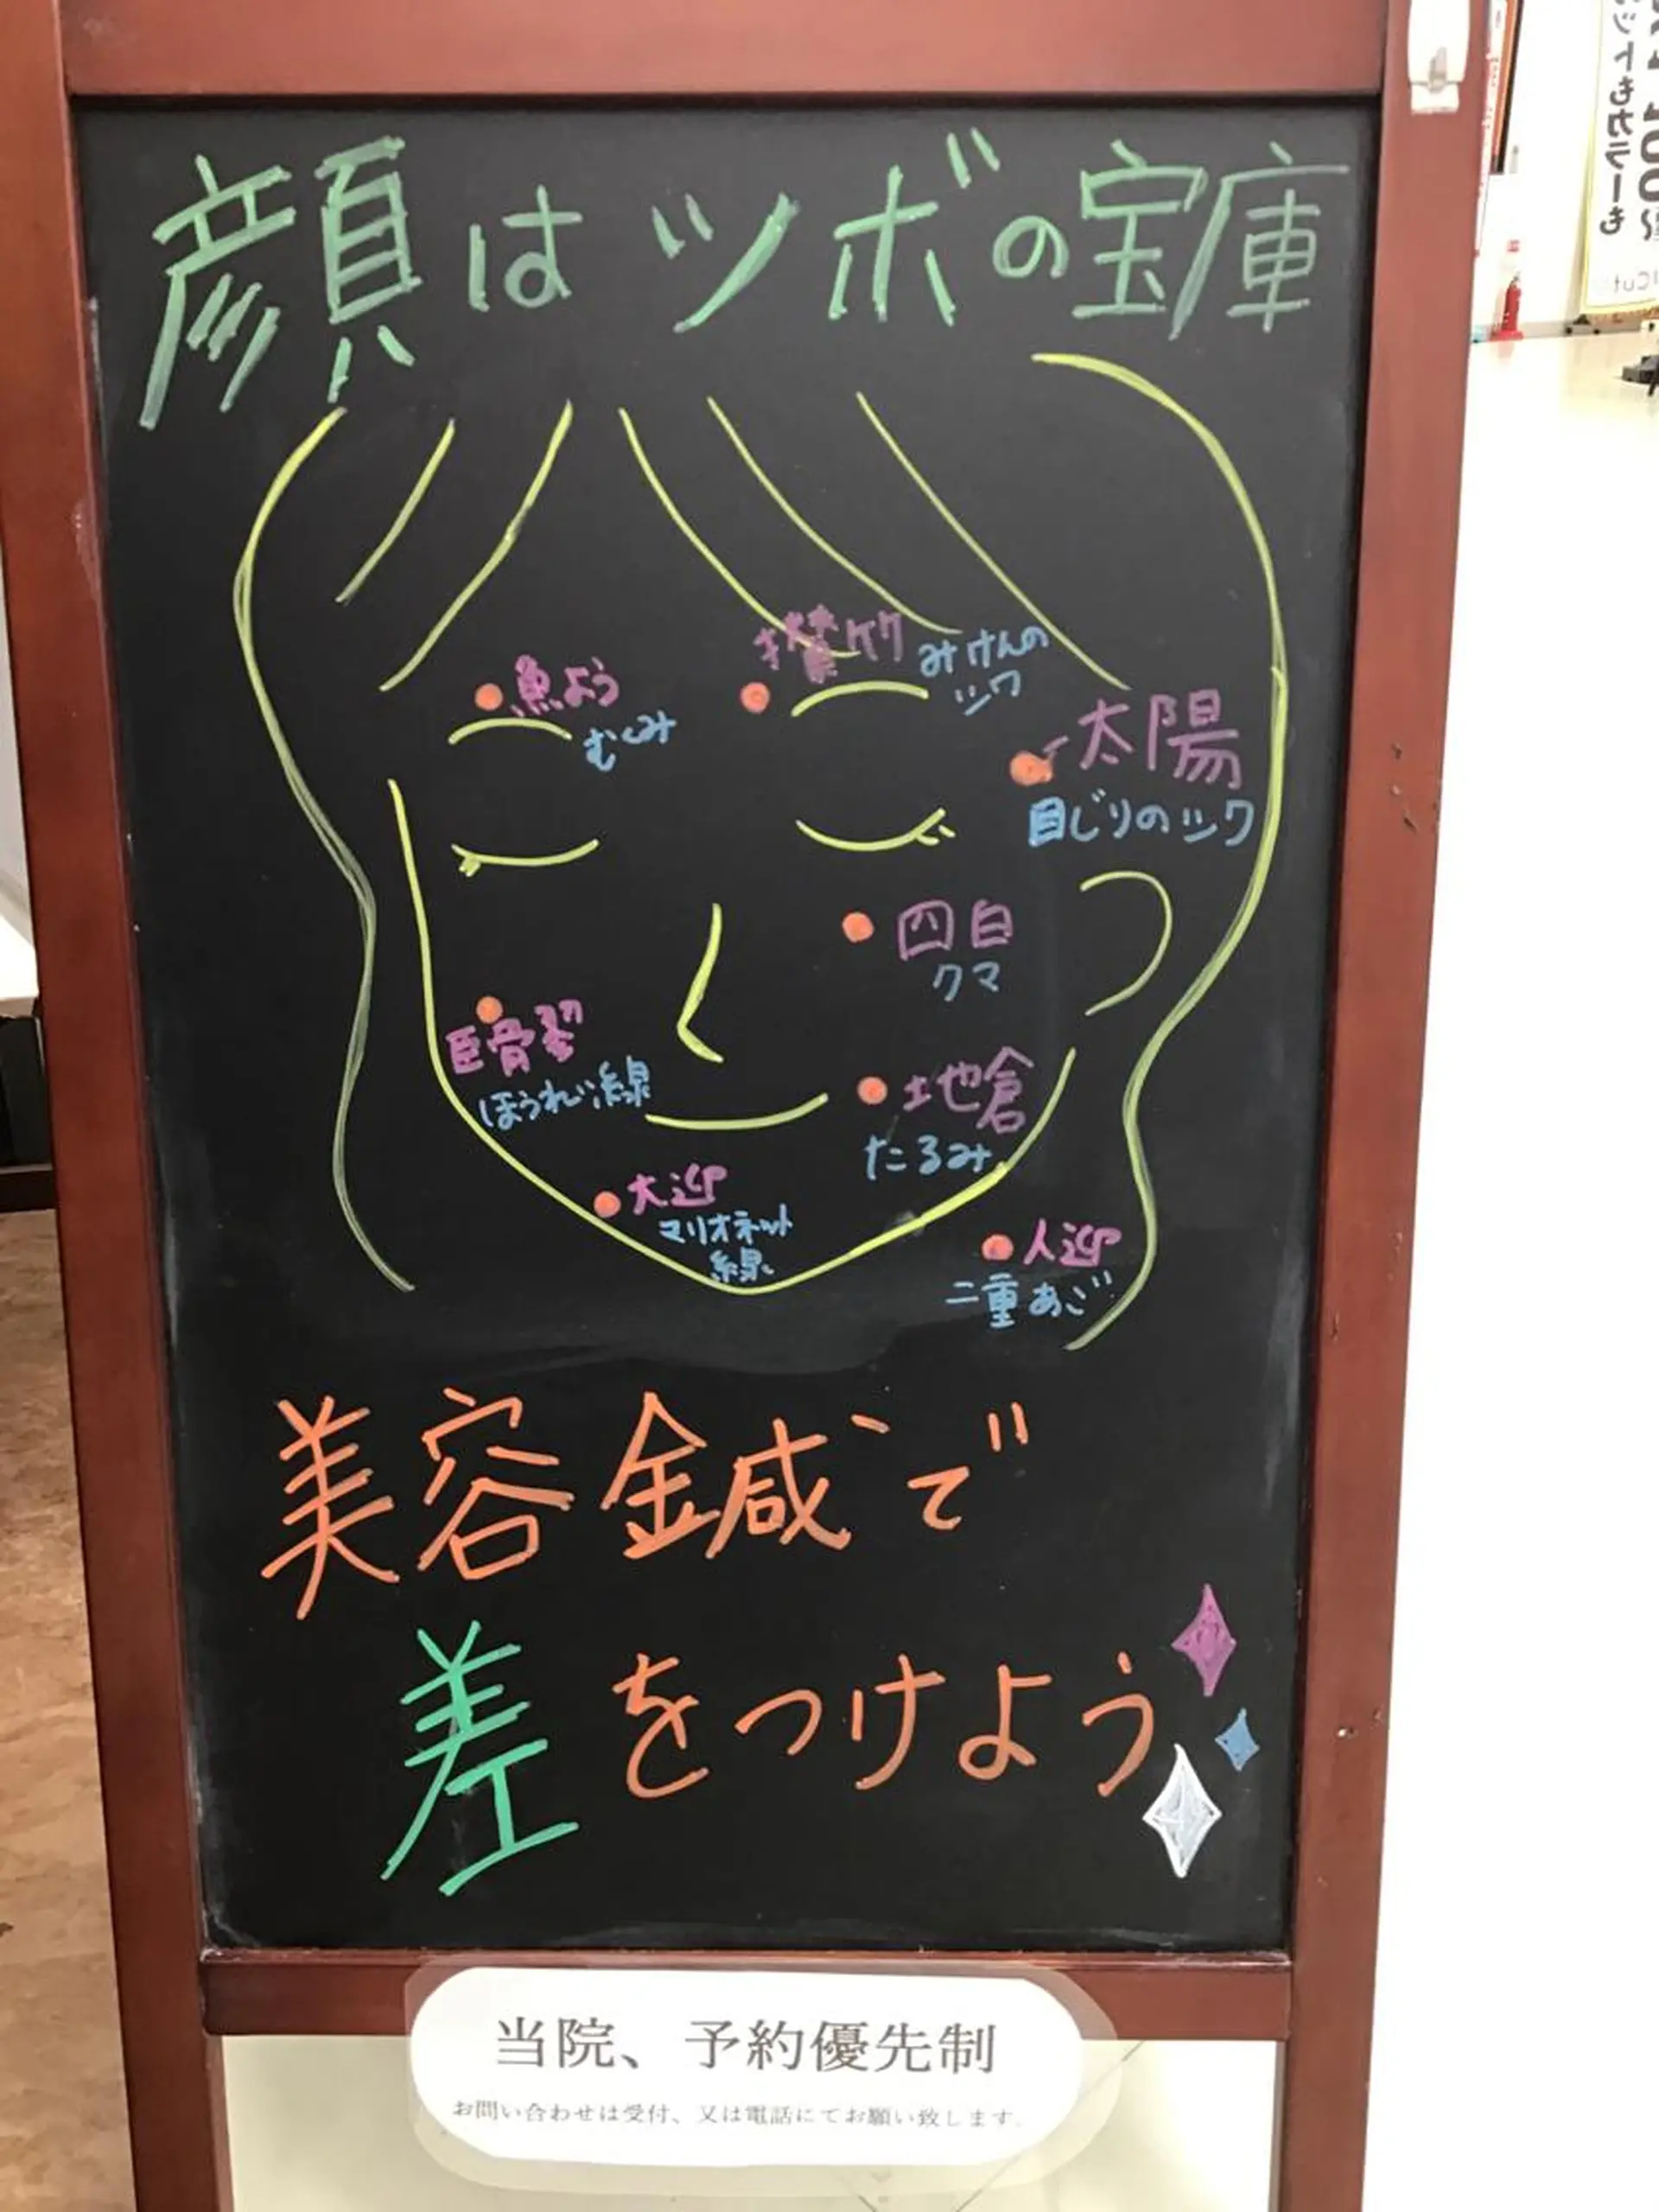 顔はツボの宝庫
攅竹
みけんの
シワ
魚よう
むくみ
太陽
目じりのシワ
四白
クマ
巨骨翏
ほうれい線
地倉
たるみ
大迎
マリオネット
線
人迎
二重あご
美容鍼で
差をつけよう
当院、予約優先制
お問い合わせは受付、又は電話にてお願い致します。